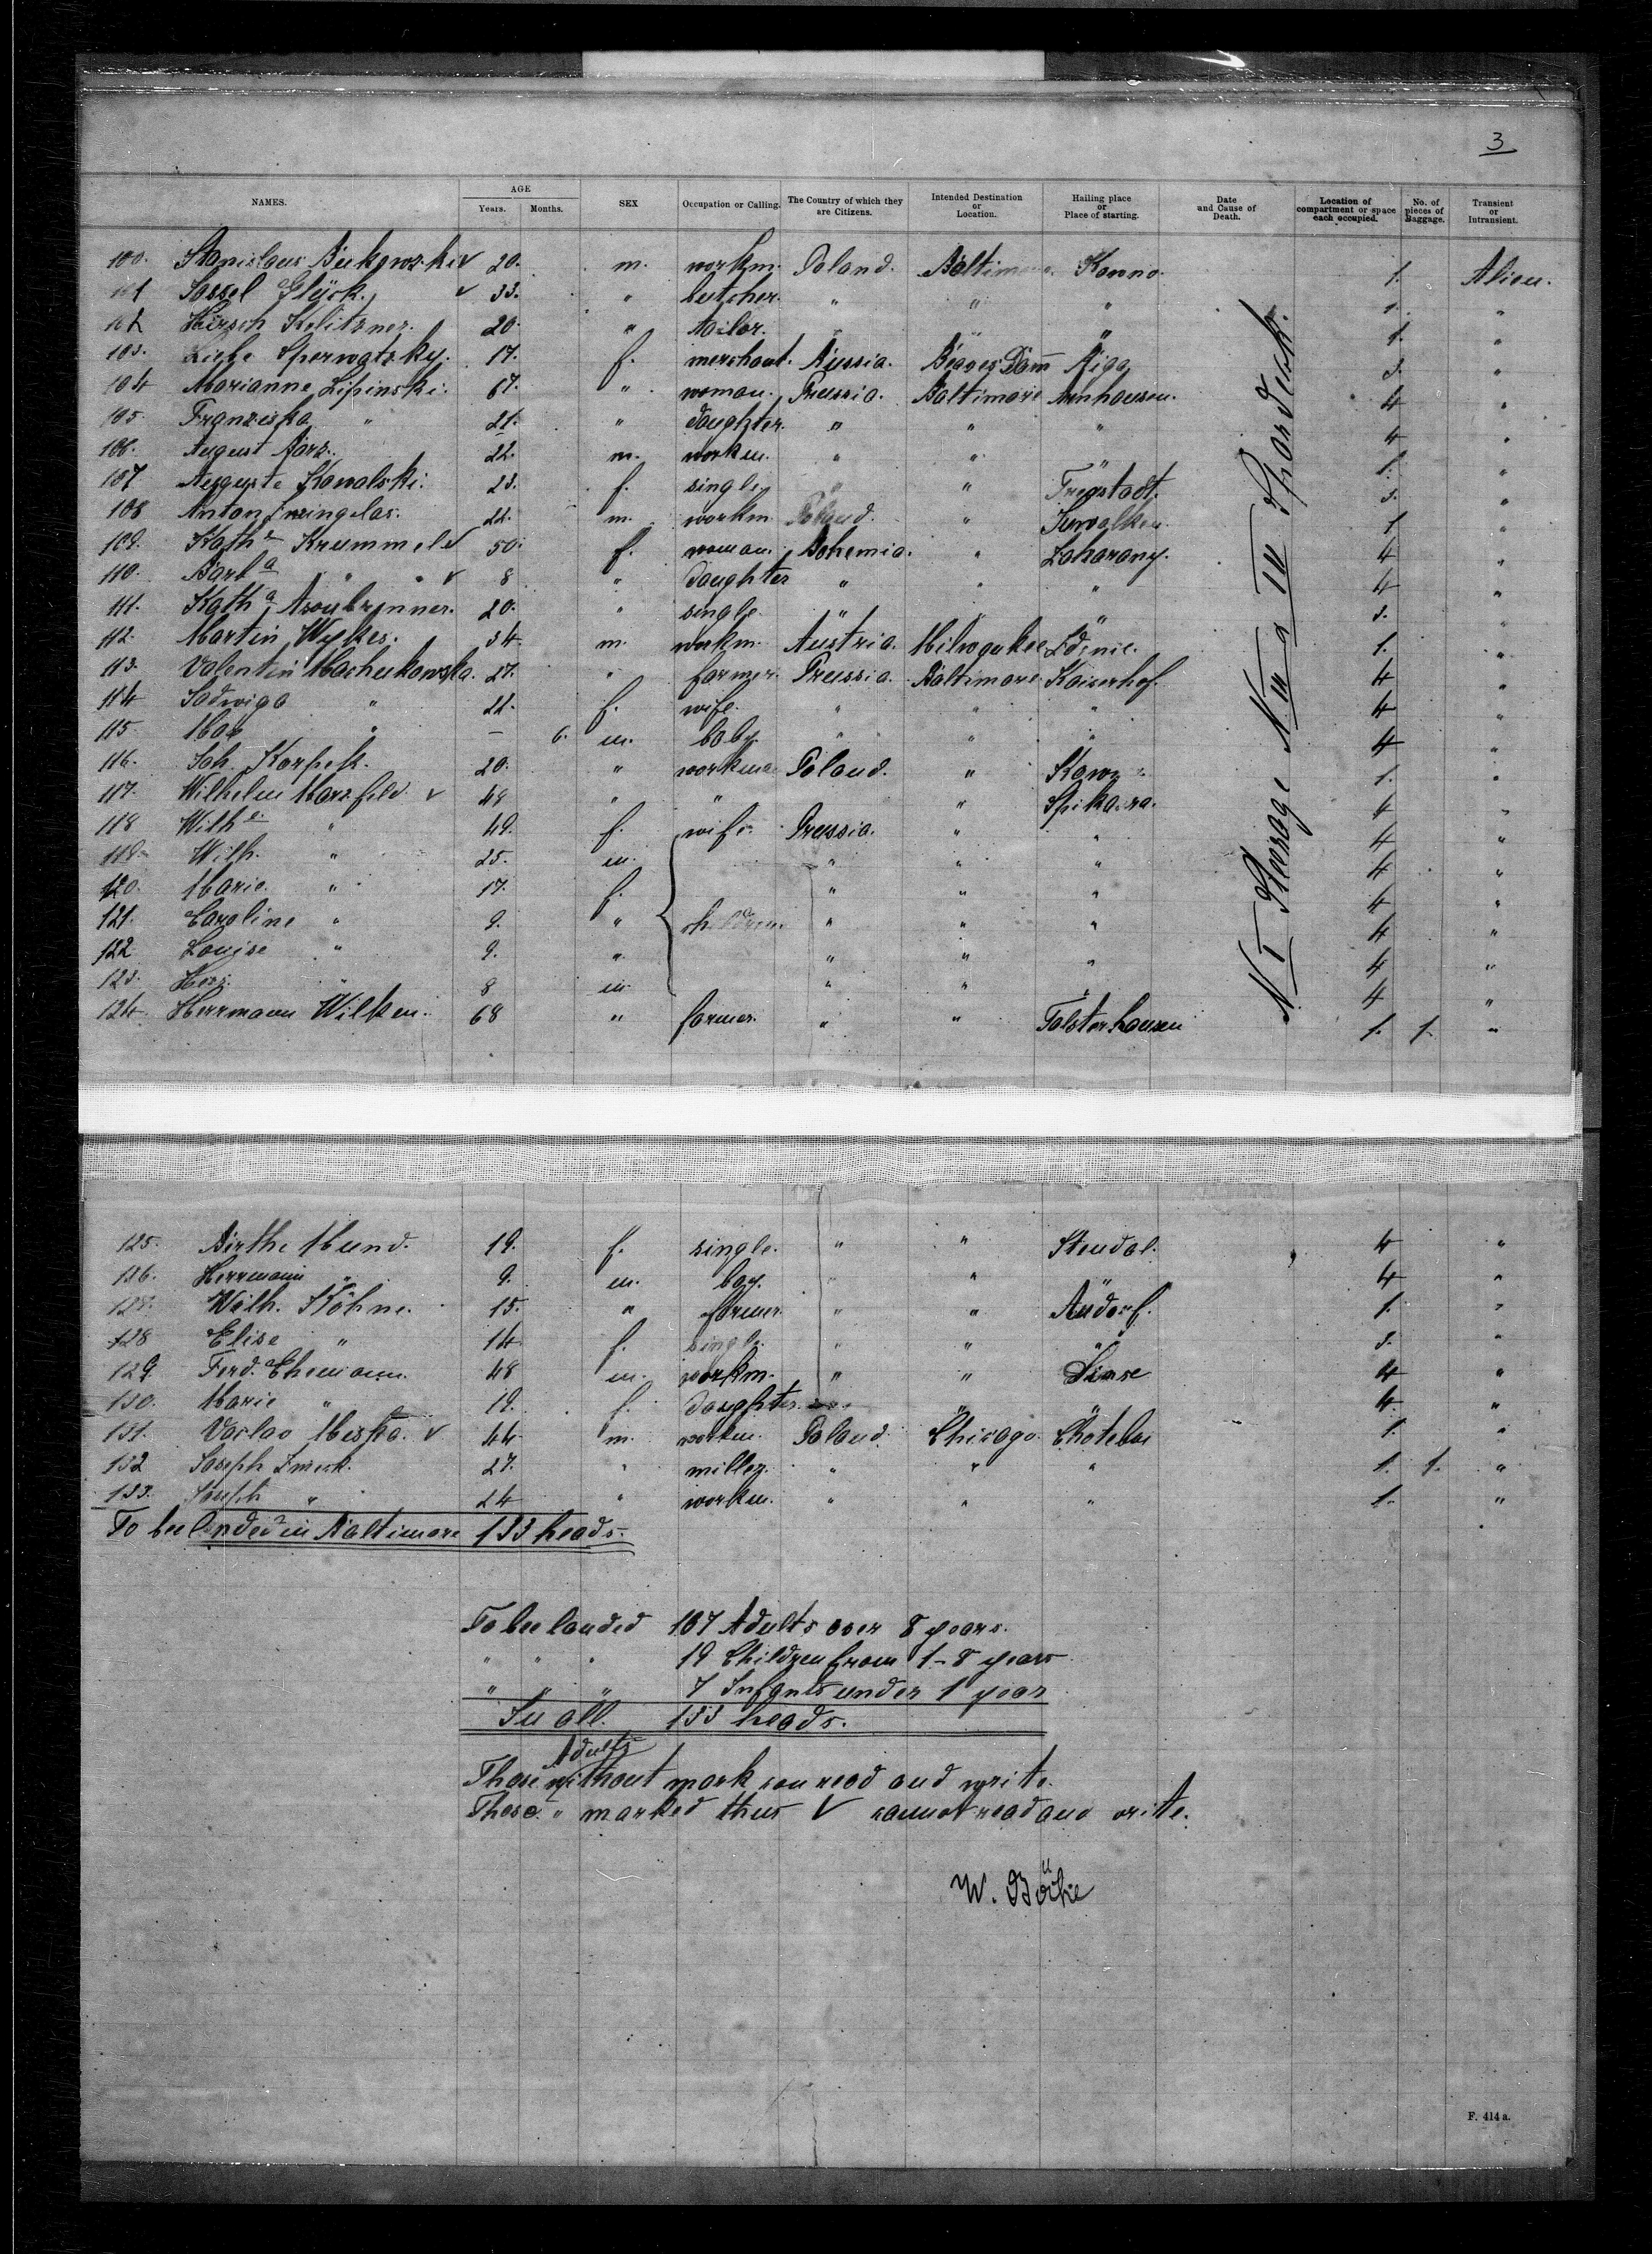 3
NAMES. AGE Years. Months. SEX Occupation or Calling. The Country of which they are Citizens. Intended Destination or Location. Hailing place or Place of starting. Date and Cause of Death. Location of compartment or space each occupied. No. of pieces of Baggage. Transient or Intransient.
100. Stanislaus V 20. m. workm. Poland. Baltimore. Kowno. 1. Alien.
101 Jossel Glück. V 33. " butcher. " " " 1. "
102 Hirsch Kelitzner. 20. " tailor. " " " 1. "
103. Liebe Sperwatzky. 17. f. merchant. Russia. Beaver Dam Riga 3. "
104 Marianne Lipinski. 67. " woman. Prussia. Baltimore Arnhausen. 4 "
105. Franziska " 21. " daughter. " " " 4 "
106. August 22. m. workm. " " " 1. "
107 Auguste Kowalski. 23. f. single " " Freystadt. 3. "
108 Anton 22. m. workm. Poland. " Suwalken. 1. "
109. Kath. Krummel V 50. f. woman. Bohemia. " 4 "
110. Barba " V 8 " daughter " " " 4 "
111. Katha 20. " single " " " 3. "
112. Martin Wylkes. 34. m. workm. Austria. Milwaukee 1. "
113. Valentin 27. " farmer. Prussia. Baltimore Kaiserhof. 4 "
114 Jadwiga " 22. f. wife. " " " 4 "
115. Max " — 6. m. baby " " " 4 "
116. Joh. Karpek. 20. " workm. Poland. " 1. "
117. Wilhelm Marzfeld. V 48 " " " 4 "
118 Wilhe " 49. f. wife. Prussia. " " 4 "
119. Wilh. " 25. m. " " " 4 "
120. Marie. " 17. f. " " " 4 "
121. Caroline " 9. " children " " " 4 "
122 Louise " 9. " " " " 4 "
123. Herr. " 8 m. " " " 4 "
124. Herrmann Wilken. 68 " farmer. " " 1. 1. "
N I Steerage N III a IIII
125. Birthe Mund. 19. f. single. " " Stendal. 4 "
126. Herrmann " 9. m. boy. " " " 4 "
127. Wilh. Köhne. 15. " farmer. " " Ausdorf. 1. "
128 Elise " 14 f. single. " " " 3. "
129. Ferd. Ehemann. 48 m. workm. " " 4 "
130. Marie " 19. f. daughter. " " 4 "
131. Vaclav V 44 m. workm. Poland. Chicago. Chotebor 1. "
132 Joseph 27. " miller. " " " 1. 1. "
133. Joseph " 24 " workm. " " " 1. "
To bee landed in Baltimore 133 heads.
To bee landed 107 Adults over 8 years.
" " " 19 Children from 1-8 years
" " " 7 Infants under 1 year
In all. 133 heads.
Adults
These without mark can read and write.
These " marked thus V cannot read and write.
W.
F. 414 a.